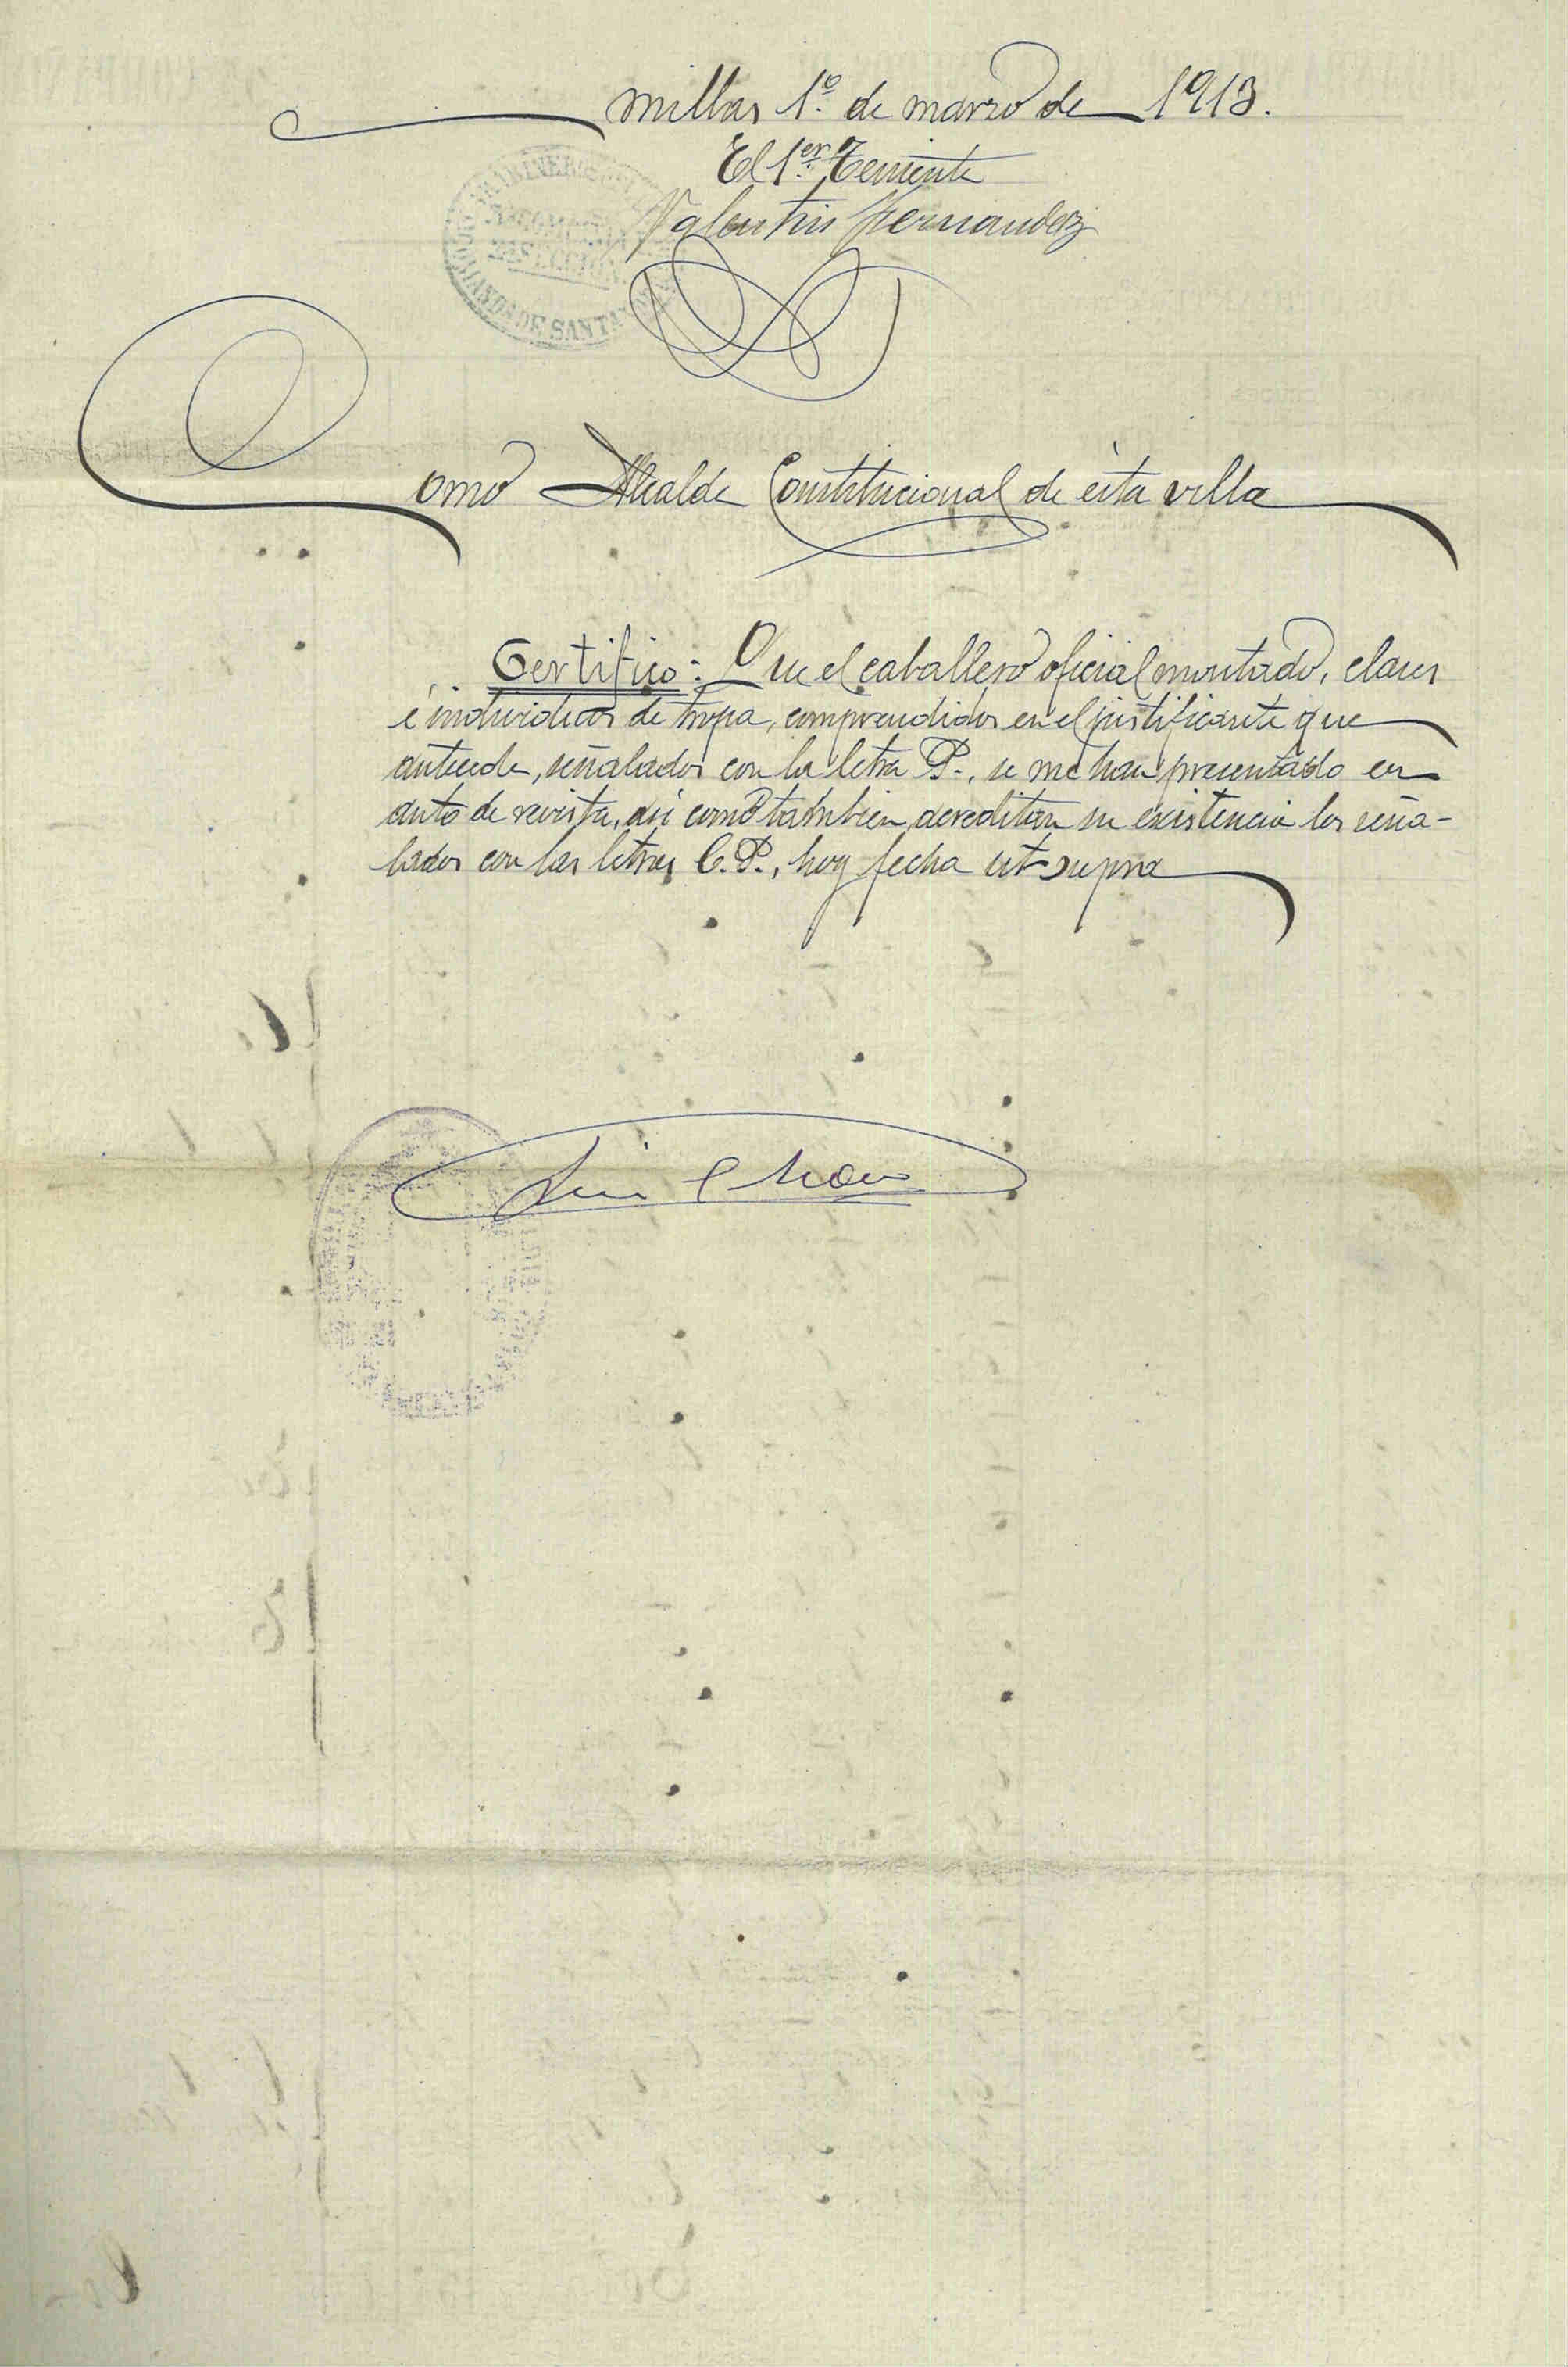 millas 1º de marzo de 1913.
El 1er Teniente
Valentin Hernandez
COMANDA DE SANTA
SECCION
Como Alcalde Constitucional de ésta villa
Certifico: Que el caballero oficial montado, clases
é individuos de tropa, comprendidos en el justificante que
antecede, señalados con la letra P., se me han presentado en
auto de revista, asi como tambien acreditan su existencia los seña-
lados con las letras C.P., hoy fecha ut-supra
Luis